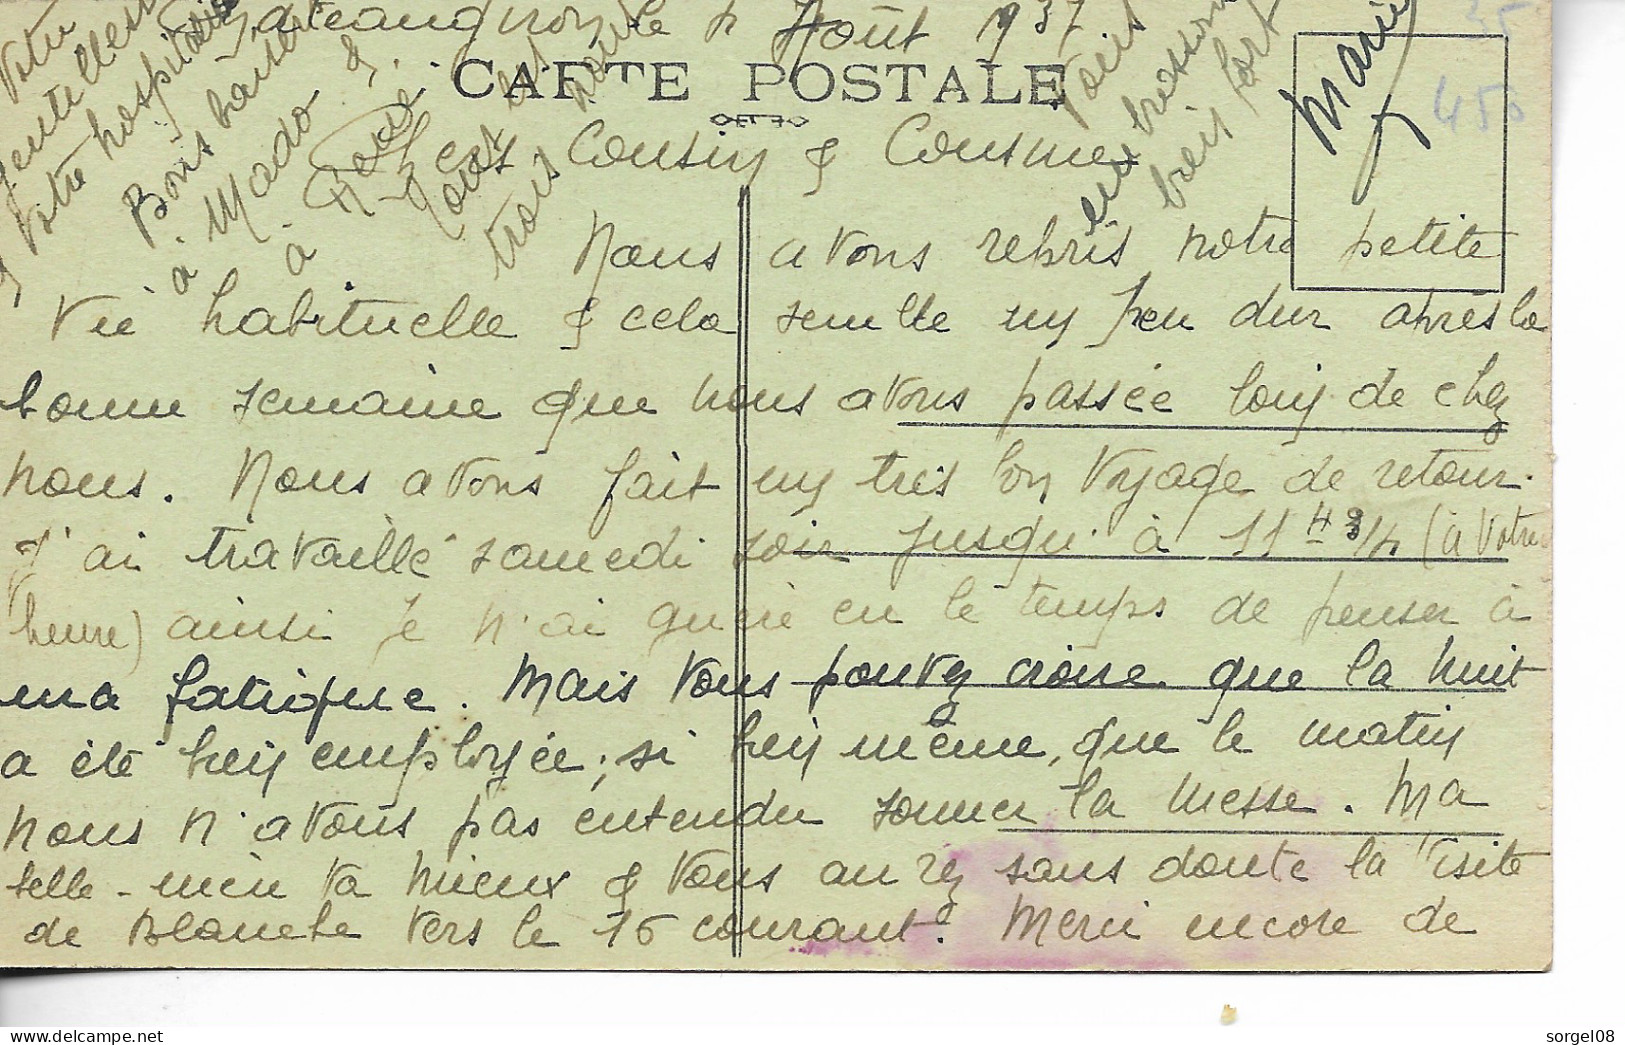 le 4 Août 1937
CARTE POSTALE
Chers Cousin & Cousine
Nous avons repris notre petite
vie habituelle & cela semble un peu dur après la
bonne semaine que nous avons passée loin de chez
nous. Nous avons fait un très bon voyage de retour.
J'ai travaillé samedi soir jusqu'à 11 H 3/4 (à votre
heure) ainsi je n'ai guère eu le temps de penser à
ma fatigue. Mais vous pouvez croire que la nuit
a été bien employée; si bien même, que le matin
nous n'avons pas entendu sonner la messe. Ma
belle-mère va mieux & vous aurez sans doute la visite
de Blanche vers le 15 courant. Merci encore de
votre
gentillesse
& votre hospitalité
Bons baisers
à Mado &
à
tous
trois
bien fort
Marie
35
450
sorgel08